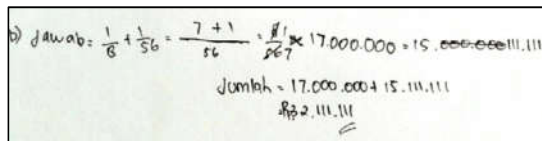 b) Jawab = 1/8 + 1/56 = 7 + 1/56 = 81/567 × 17.000.000 = 15.000.000 111.111
Jumlah = 17.000.000 + 15.111.111
= Rp32.111.111